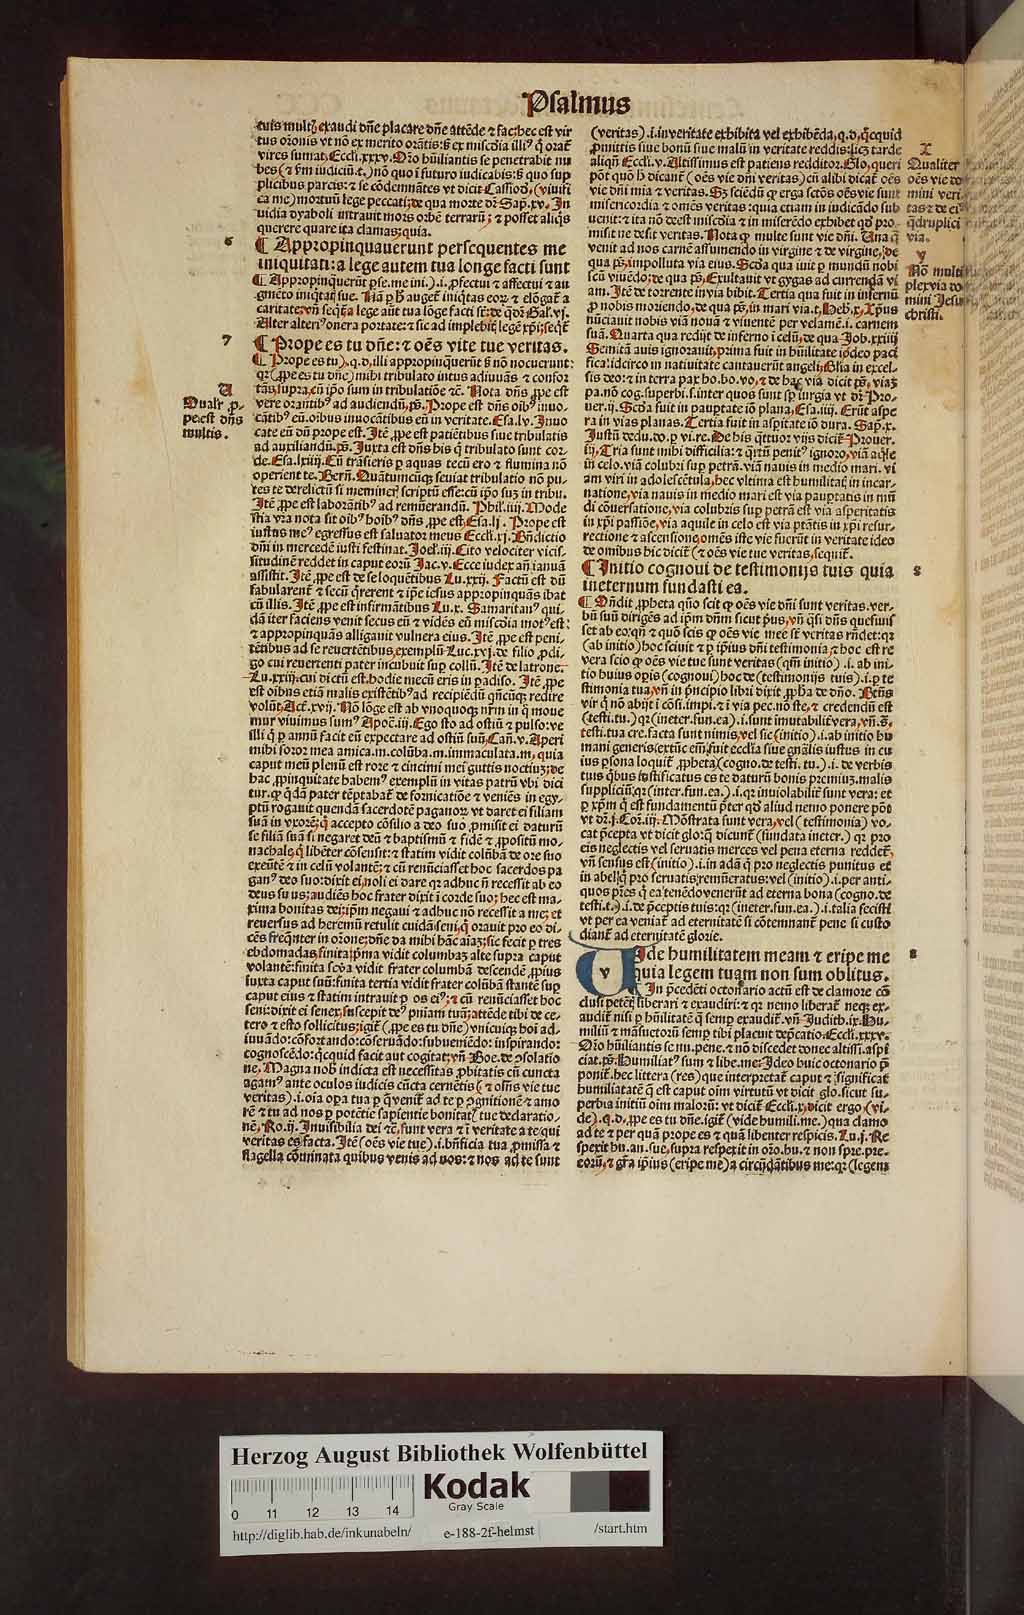 Psalmus
tuis multꝫ exaudi dñe placare dñe attẽde ⁊ fac: hec est vir
tus oronis vt nõ ex merito orãtis: sꝫ ex miscdia illiꝰ q̃ orat̃
vires sumat, Eccli.xxxv. Oro hũiliantis se penetrabit nu
bes
plicibus parcis: ⁊ se cõdemnãtes vt dicit Cassiod. (viuifi
ca me) mortuũ lege peccati: de qua morte dr̃ Sap̃.xv. In
uidia dyaboli intrauit mors orbẽ terrarũ: ⁊ posset aliq̃s
querere quare ita clamas: quia.
6
¶ Appropinquauerunt persequentes me
iniquitati: a lege autem tua longe facti sunt
¶ Appropinquerũt
caritate:
Alter alteriꝰ onera portate: ⁊ sic ad implebitꝭ legẽ xp̃i: seq̃t̃
7
¶ Prope es tu dñe: ⁊ oẽs vite tue veritas.
¶ Prope es tu). q.d. illi appropinquerũt sꝫ nõ nocuerunt:
qꝛ (ꝓpe es tu dñe) mihi tribulato intus adiuuãs ⁊ confor
tãs, supra, cũ ip̃o sum in tribulatiõe ⁊c. Nota dñs ꝓpe est
U
Qualr̃ ꝓ-
pe est dñs
multis.
vere orantibꝰ ad audiendũ, ps̃. Prope est dñs oibꝰ inuo-
cãtibꝰ eũ. oibus inuocãtibus eũ in veritate. Esa.lv. Inuo
cate eũ dũ prope est. Itẽ ꝓpe est patiẽtibus siue tribulatis
ad auxiliandũ. ps̃. Iuxta est dñs his q̃ tribulato sunt cor-
de. Esa.lxiij. Cũ trãsieris p aquas tecũ ero ⁊ flumina nõ
operient te. Berñ. Quãtumcũqꝫ seuiat tribulatio nõ pu-
tes te derelictũ si memineris scriptũ esse: cũ ip̃o suꝫ in tribu.
Itẽ ꝓpe est laborãtibꝰ ad remũerandũ. Phil'.iiij. Mode
stia vr̃a nota sit oibꝰ hoibꝰ dñs ꝓpe est, Esa.lj. Prope est
iustus meꝰ egressus est saluator meus Eccli.xj. Bñdictio
dñi in mercedẽ iusti festinat. Joel'.iij. Cito velociter vicis-
situdinẽ reddet in caput eorũ Jac.v. Ecce iudex añ ianuã
assistit. Itẽ ꝓpe est de se loquẽtibus Lu.xxij. Factũ est dũ
fabularent̃ ⁊ secũ q̃rerent ⁊ ip̃e iesus appropinquãs ibat
cũ illis. Itẽ ꝓpe est infirmãtibus Lu.x. Samaritanꝰ qui-
dã iter faciens venit secus eũ ⁊ vidẽs eũ miscdia motꝰ est:
⁊ appropinquãs alligauit vulnera eius. Itẽ ꝓpe est peni-
tẽtibus ad se reuertẽtibus, exemplũ Luc.xvj. de filio ꝓdi-
go cui reuertenti pater incubuit sup collũ. Itẽ de latrone.
Lu.xxiij. cui dictũ est. hodie mecũ eris in padiso. Itẽ ꝓpe
est oibus etiã malis existẽtibꝰ ad recipiẽdũ qñcũqꝫ redire
volũt, Act.xvij. Nõ lõge est ab vnoquoqꝫ nr̃m in q̃ moue
mur viuimus sumꝰ Apoc̃.iij. Ego sto ad ostiũ ⁊ pulso: ve
illi q̃ p annũ facit eũ expectare ad ostiũ suũ, Cañ.v. Aperi
mihi soror mea amica.m. colũba.m. immaculata.m. quia
caput meũ plenũ est rore ⁊ cincinni mei guttis noctiuꝫ: de
hac ꝓpinquitate habemꝰ exemplũ in vitas patrũ vbi dici
tur, ꝙ q̃dã pater tẽptabat̃ de fornicatiõe ⁊ veniẽs in egy-
ptũ rogauit quendã sacerdotẽ paganoꝝ vt daret ei filiam
suã in vxorẽ: q̃ accepto cõsilio a deo suo ꝓmisit ei daturũ
se filiã suã si negaret deũ ⁊ baptismũ ⁊ fidẽ ⁊ ꝓpositũ mo-
nachale: q̃ libẽter cõsensit: ⁊ statim vidit colũbã de ore suo
exeũtẽ ⁊ in celũ volantẽ: ⁊ cũ renũciasset hoc sacerdos pa
ganꝰ deo suo: dixit ei, noli ei dare qꝛ adhuc nõ recessit ab eo
deus suus: audiẽs hoc frater dixit ĩ corde suo: hec est ma-
xima bonitas dei: ip̃m negaui ⁊ adhuc nõ recessit a me: et
reuersus ad heremũ retulit cuidã seni, q̃ orauit pro eo di-
cẽs freq̃nter in orõne: dñe da mihi hãc aiaꝫ: sic fecit p tres
ebdomadas, finita pma vidit columbaꝫ alte supra caput
volantẽ: finita scd̃a vidit frater columbã descendẽ ꝓpius
iuxta caput suũ: finita tertia vidit frater colũbã stantẽ sup
caput eius ⁊ statim intrauit p os eiꝰ: ⁊ cũ renũciasset hoc
seni: dixit ei senex, suscepit deꝰ pniam tuã: attẽde tibi de ce-
tero ⁊ esto sollicitus: igit̃ (ꝓpe es tu dñe) vnicuiqꝫ boi ad-
iuuãdo: cõfortando: cõseruãdo: subueniẽdo: inspirando:
cognoscẽdo: q̃cquid facit aut cogitat: vñ Boe. de ꝯsolatio
ne, Magna nobꝭ indicta est necessitas ꝓbitatis cũ cuncta
agamꝰ ante oculos iudicis cũcta cernẽtis (⁊ oẽs vie tue
veritas).i. oia opa tua p q̃ venit̃ ad te p ꝯgnitionẽ ⁊ amo
rẽ ⁊ tu ad nos p potẽtie sapientie bonitatꝭ tue declaratio-
nẽ, Ro.ij. Inuisibilia dei ⁊c̃, sunt vera ⁊ ĩ veritate a te: qui
veritas es facta. Itẽ (oẽs vie tue).i. bñficia tua ꝓmissa ⁊
flagella cõminata quibus venis ad nos: ⁊ nos ad te sunt
(veritas).i. in veritate exhibita vel exhibẽda, q.d. q̃cquid
ꝓmittis siue bonũ siue malũ in veritate reddis: licꝫ tarde
aliqñ Eccli.v. Altissimus est patiens redditor. Sꝫ, queri
X
Qualiter
oẽs vie do
mini veri
tas ⁊ de ei
q̃druplici
via.
põt quo h̃ dicant̃ (oẽs vie dñi veritas) cũ alibi dicat̃ oẽs
vie dñi mia ⁊ veritas. Sꝫ sciẽdũ ꝙ erga sctõs oẽs vie sunt
misericordia ⁊ omẽs veritas: quia etiam in iudicãdo sub
uenit: ⁊ ita nõ deest miscdia ⁊ in miserẽdo exhibet qd̃ pro-
misit ne desit veritas. Nota ꝙ multe sunt vie dñi. Una q̃
venit ad nos carnẽ assumendo in virgine ⁊ de virgine, de
y
Nõ multi
plex via do
mini Jesu
christi.
qua ps̃, impolluta via eius. Scd̃a qua iuit p mundũ nobi
scũ viuẽdo: de qua ps̃, Exultauit vt gygas ad currendã vi
am. Itẽ de torrente in via bibit. Tertia qua fuit in infernũ
ꝓ nobis moriendo, de qua ps̃, in mari via t. Heb.x, Xp̃us
nũciauit nobis viã nouã ⁊ viuentẽ per velamẽ.i. carnem
suã. Quarta qua redijt de inferno ĩ celũ, de qua Job.xxiij
Semitã auis ignorauit, prima fuit in hũilitate io deo paci
fica: idcirco in natiuitate cantauerũt angeli: Glia in excel-
sis deo: ⁊ in terra pax ho.bo.vo, ⁊ de hac via dicit ps̃, viaꝫ
pa.nõ cog. superbi.s. inter quos sunt sp iurgia vt dr̃ Pro-
uer.ij. Scd̃a fuit in paupertate iõ plana, Esa.iiij. Erũt aspe
ra in vias planas. Tertia fuit in aspitate iõ dura. Sap̃.x.
Justũ dedu.do.p vi.re. De his q̃ttuor vijs dicit̃ Prouer.
iij. Tria sunt mihi difficilia: ⁊ q̃rtũ penitꝰ ignoro, viã aq̃le
in celo. viã colubri sup petrã. viã nauis in medio mari. vi
am viri in adolescẽtula, hec vltima est humilitatꝭ in incar-
natione, via nauis in medio mari est via paupertatis in mũ
di cõuersatione, via colubris sup petrã est via asperitatis
in xp̃i passiõe, via aquile in celo est via ptãtis in xp̃i resur-
rectione ⁊ ascensione, omẽs iste vie fuerũt in veritate ideo
de omibus hic dicit̃ (⁊ oẽs vie tue veritas, sequit̃.
¶ Initio cognoui de testimonijs tuis quia
in eternum fundasti ea.
8
¶ Oñdit ꝓpheta quõ scit ꝙ oẽs vie dñi sunt veritas. ver-
bũ suũ dirigẽs ad ip̃m dñm sicut pꝰus, vñ q̃si dñs quesiuis
set ab eo: qñ ⁊ quõ scis ꝙ oẽs vie mee sꝫ veritas rñdet: qꝛ
(ab initio) hoc sciuit ⁊ p ip̃ius dñi testimonia, ⁊ hoc est re
vera scio ꝙ oẽs vie tue sunt veritas (qm̃ initio) .i. ab ini-
tio huius opis (cognoui) hoc de (testimonijs tuis).i. p te
stimonia tua, vñ in pncipio libri dixit ꝓpha de dño. Btũs
vir q̃ nõ abijt ĩ cõsi.impi. ⁊ ĩ via pec.nõ ste, ⁊ credendũ est
(testi.tu.) qꝛ (in eter.fun.ea.).i. sunt ĩmutabilit̃ vera, vñ.s̃.
testi.tua cre. facta sunt nimis, vel sic (initio).i. ab initio hu
mani generis, extũc eĩm fuit ecclia siue gñalis iustus in cu
ius psona loquit̃ ꝓpheta, (cogno.de testi.tu.).i. de verbis
tuis q̃bus iustificatus es te daturũ bonis premiuꝫ. malis
suppliciũ: qꝛ (in ter.fun.ea.).i. qꝛ inuiolabilit̃ sunt vera: et
p xp̃m q̃ est fundamentũ pter qd̃ aliud nemo ponere põt
vt dr̃.j. Cor.iij. Mõstrata sunt vera, vel (testimonia) vo-
cat pcepta vt dicit glo: q̃ dicunt̃ (fundata in eter.) qꝛ pro
eis neglectis vel seruatis merces vel pena eterna reddet̃,
vñ sensus est (initio).i. in adã q̃ pro neglectis punitus et
in abel q̃ pro seruatis remũeratus: vel (initio).i. per anti-
quos pr̃es q̃ ea tenẽdo venerũt ad eterna bona (cogno.de
testi.t.).i. de pceptis tuis: qꝛ (in eter.sun.ea.).i. talia fecisti
vt per ea veniat̃ ad eternitatẽ si cõtemnant̃ pene si custo
diant̃ ad eternitatẽ glorie.
v
Ide humilitatem meam ⁊ eripe me
quia legem tuam non sum oblitus.
8
¶ In pcedẽti octonario actũ est de clamore cõ
clusi petẽtꝭ liberari ⁊ exaudiri: ⁊ qꝛ nemo liberat̃ neqꝫ ex-
audit̃ nisi p hũilitatẽ q̃ semp exaudit̃. vñ Judith.ix. Hu-
miliũ ⁊ mãsuetorũ semp tibi placuit depcatio. Eccli.xxxv.
Oro hũiliantis se nu.pene. ⁊ nõ discedet donec altissi.aspi
ciat. ps̃. Humiliatꝰ sum ⁊ libe.me: Ideo huic octonario p
ponit̃. hec littera (res) que interpretat̃ caput ⁊ significat
humiliatatẽ q̃ est caput oim virtutũ vt dicit glo. sicut su-
perbia initiũ oim malorũ: vt dicit̃ Eccli.x, dicit ergo (vi-
de).q.d. ꝓpe es tu dñe. igit̃ (vide humili.me.) qua clamo
ad te ⁊ per quã prope es ⁊ quã libenter respicis. Lu.j. Re
spexit hu.an.sue, supra respexit in oro.hu. ⁊ non spre.pre-
eorũ, ⁊ gr̃a ip̃ius (eripe me) a circũdãtibus me: qꝛ (legem
Herzog August Bibliothek Wolfenbüttel
0 11 12 13 14
Kodak
Gray Scale
http://diglib.hab.de/inkunabeln/ e-188-2f-helmst /start.htm